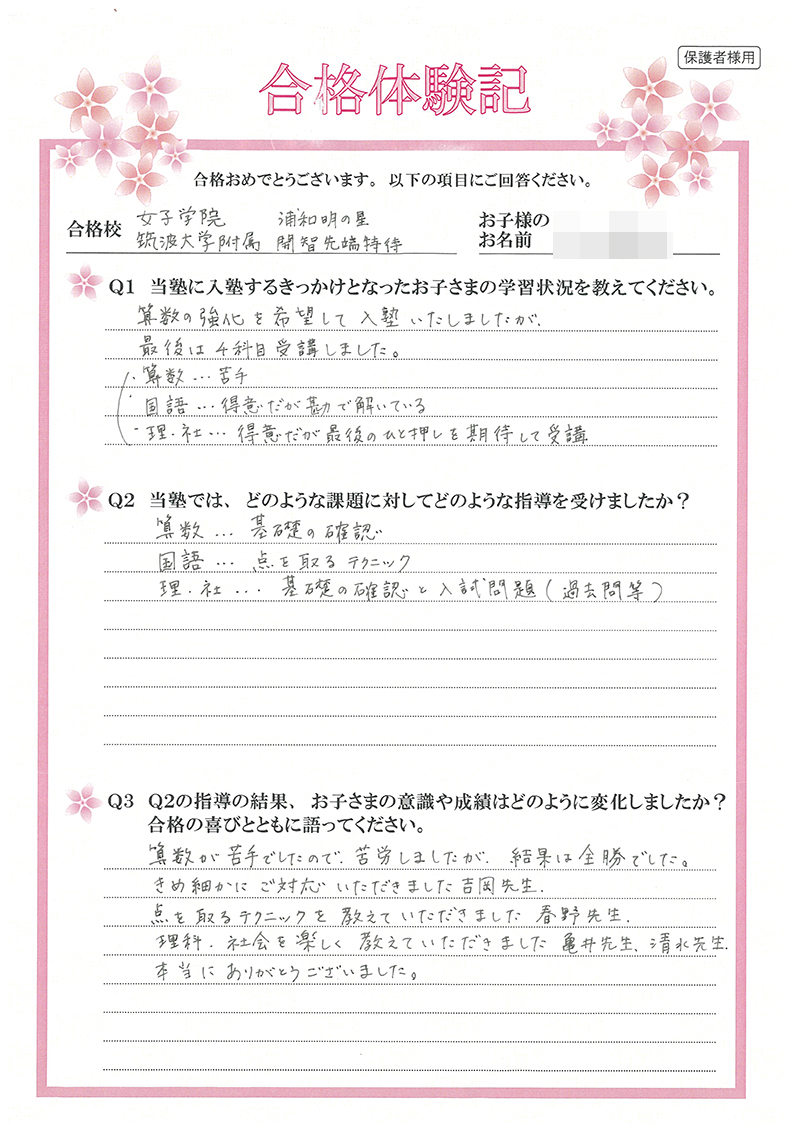 保護者様用
合格体験記
合格おめでとうございます。以下の項目にご回答ください。
合格校 女子学院 浦和明の星
筑波大学附属 開智先端特待
お子様の
お名前
Q1 当塾に入塾するきっかけとなったお子さまの学習状況を教えてください。
算数の強化を希望して入塾いたしましたが、
最後は4科目受講しました。
・算数…苦手
・国語…得意だが勘で解いている
・理・社…得意だが最後のひと押しを期待して受講
Q2 当塾では、どのような課題に対してどのような指導を受けましたか？
算数…基礎の確認
国語…点を取るテクニック
理・社…基礎の確認と入試問題(過去問等)
Q3 Q2の指導の結果、お子さまの意識や成績はどのように変化しましたか？
合格の喜びとともに語ってください。
算数が苦手でしたので、苦労しましたが、結果は全勝でした。
きめ細かにご対応いただきました吉岡先生、
点を取るテクニックを教えていただきました春野先生、
理科、社会を楽しく教えていただきました亀井先生、清水先生、
本当にありがとうございました。